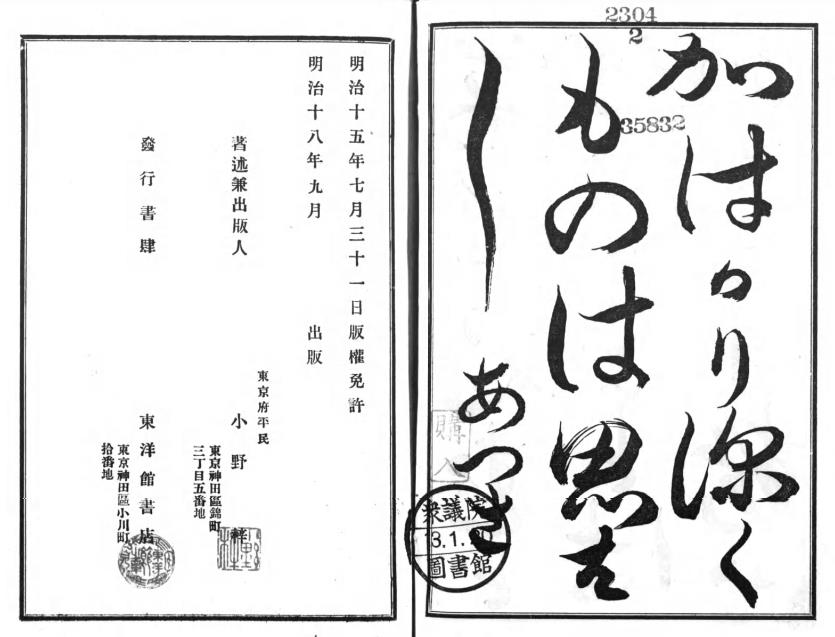 2304
2
35832
加はかり深く
ものは思は
し
あつさ
購入
衆議院
圖書館
明治十五年七月三十一日版權免許
明治十八年九月　出版
東京府平民
著述兼出版人　小野梓
東京神田區錦町
三丁目五番地
發行書肆　東洋館書店
東京神田區小川町
拾番地